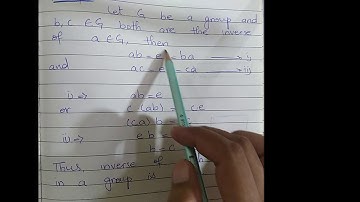 Let G be a group and
b, c ∈ G both are the inverse
of a ∈ G, then
ab = e = ba i)
and ac = e = ca ii)
i) => ab = e
or c (ab) = ce
(ca) b =
ii) => e b =
b = c
Thus, inverse of
in a group is